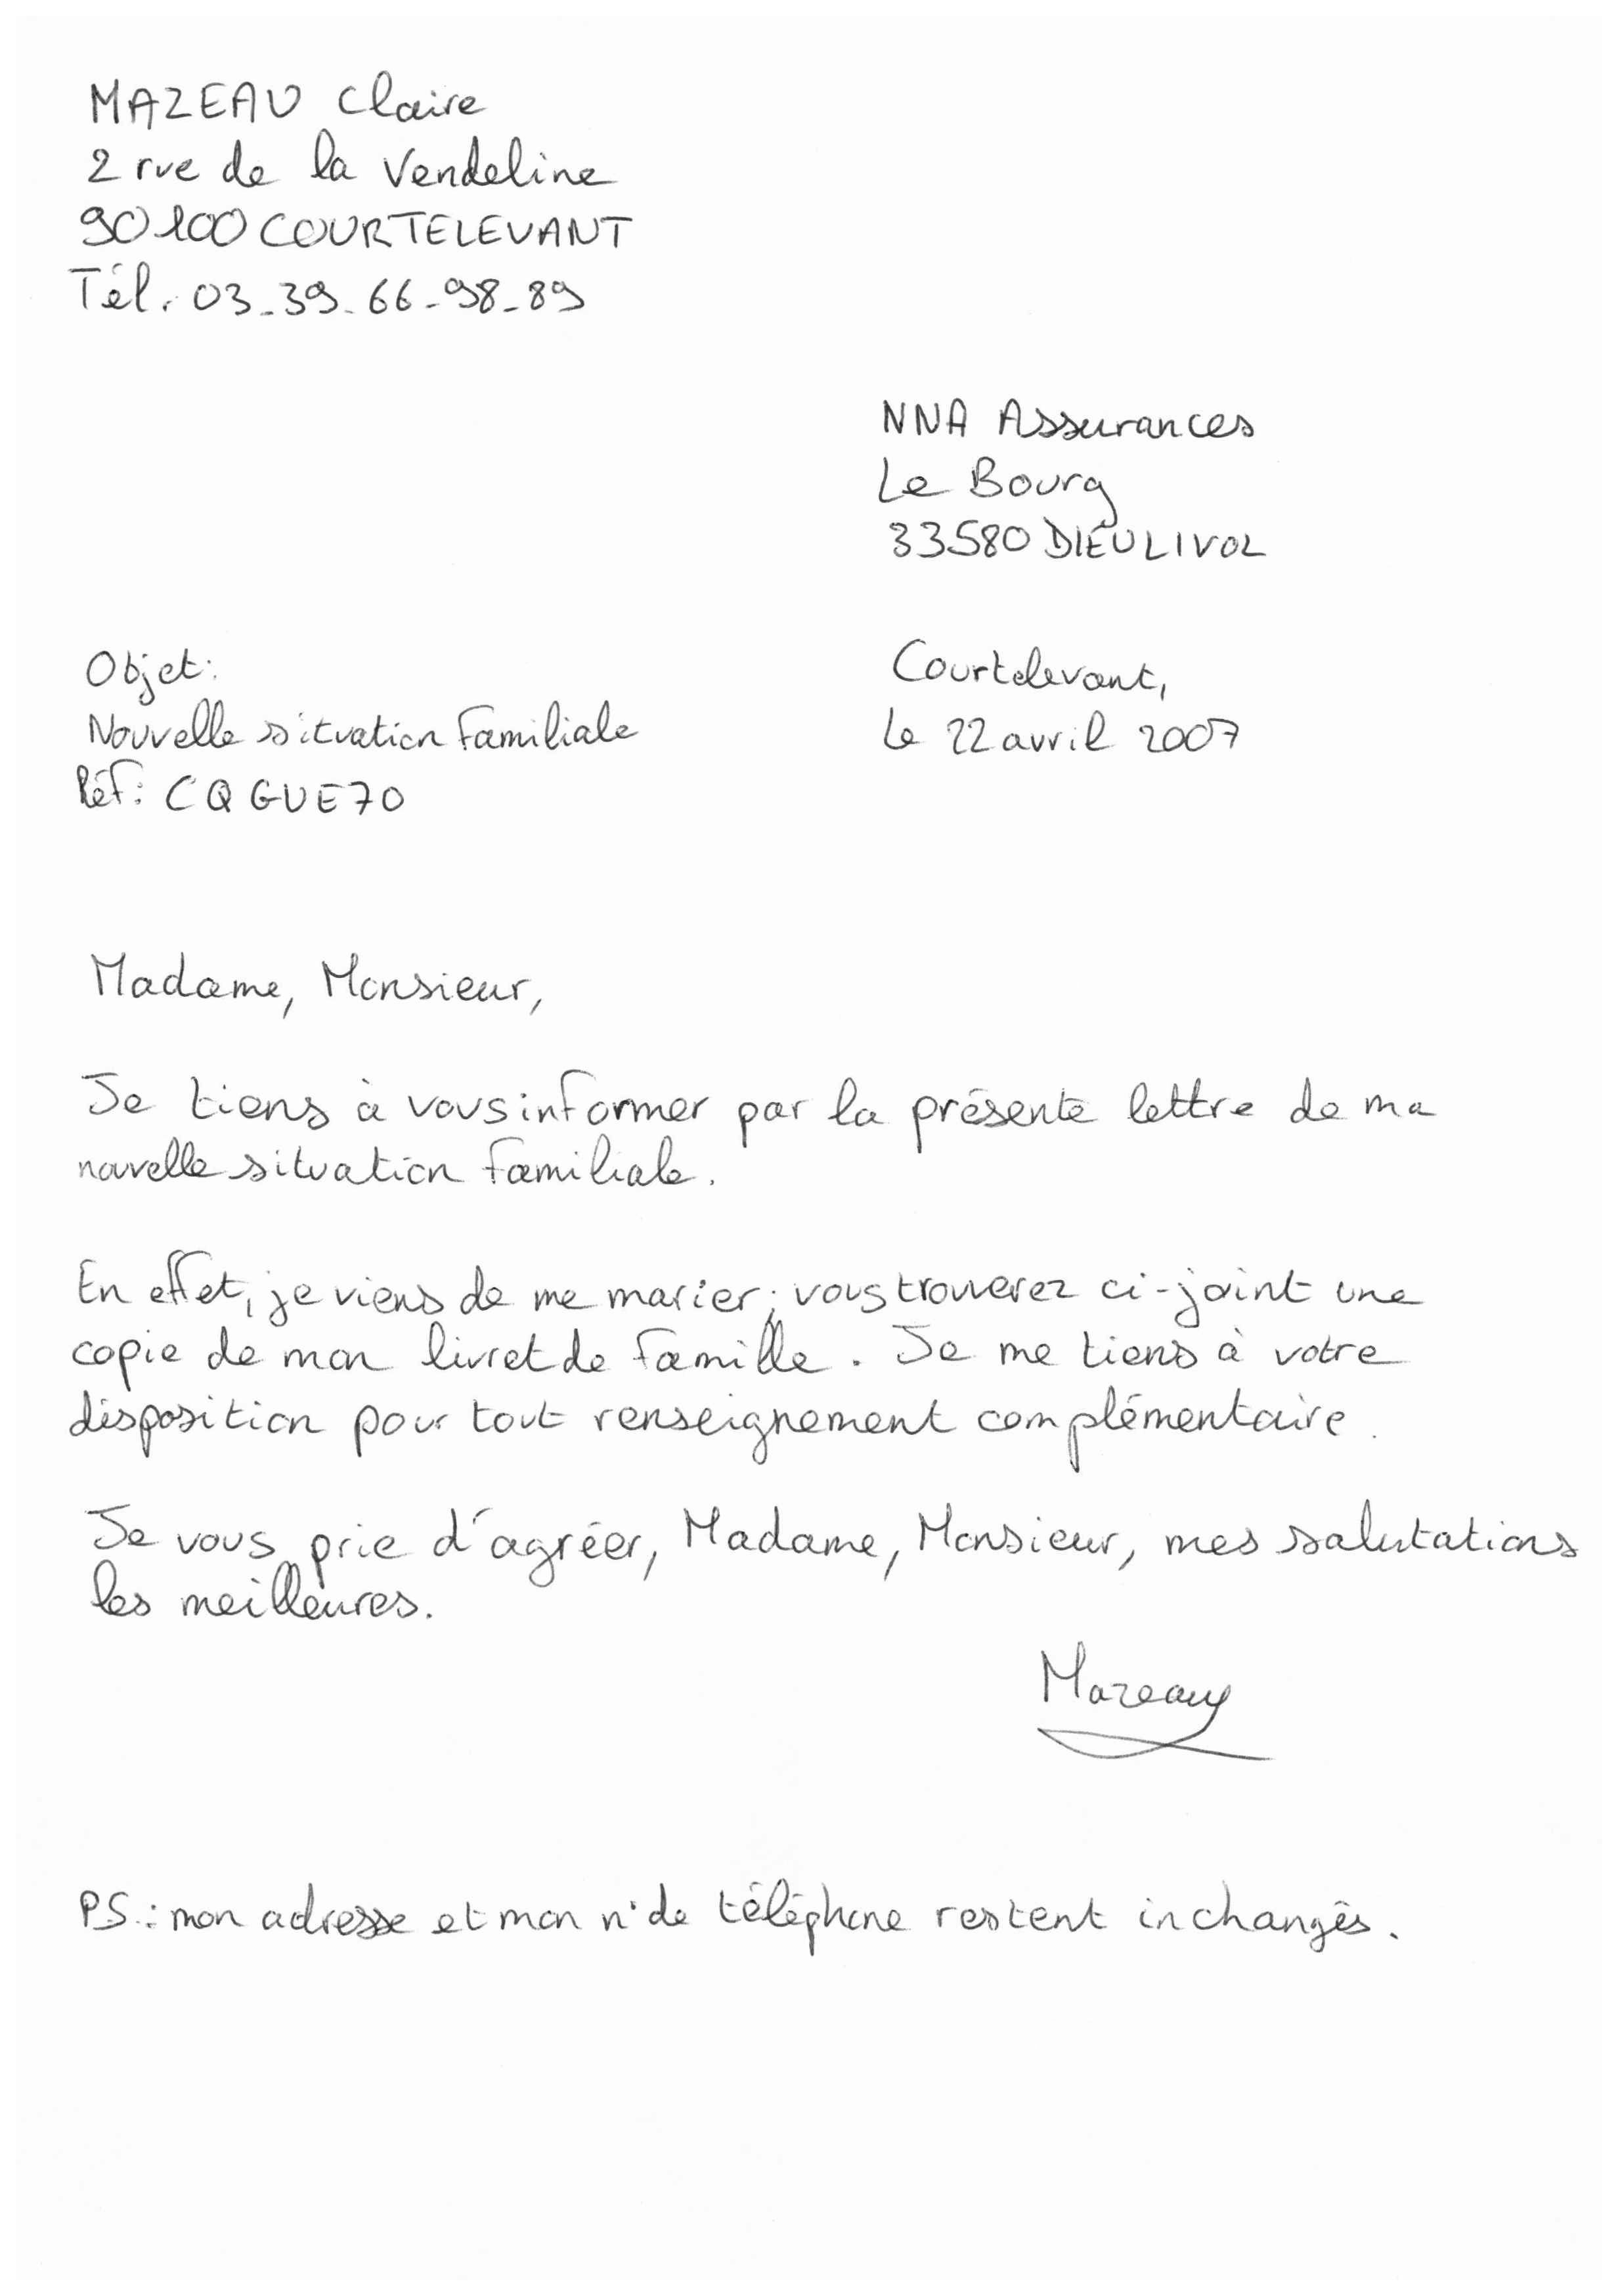 MAZEAU Claire
2 rue de la Vendeline
90100 COURTELEVANT
Tél. 03-39-66-98-89
NNA Assurances
Le Bourg
33580 DIEULIVOL
Objet:
Nouvelle situation familiale
Réf: CQGUE70
Courtelevant,
Le 22 avril 2007
Madame, Monsieur,
Je tiens à vous informer par la présente lettre de ma
nouvelle situation familiale.
En effet, je viens de me marier; vous trouverez ci-joint une
copie de mon livret de famille. Je me tiens à votre
disposition pour tout renseignement complémentaire.
Je vous prie d'agréer, Madame, Monsieur, mes salutations
les meilleures.
Mazeau
PS: mon adresse et mon n° de téléphone restent inchangés.